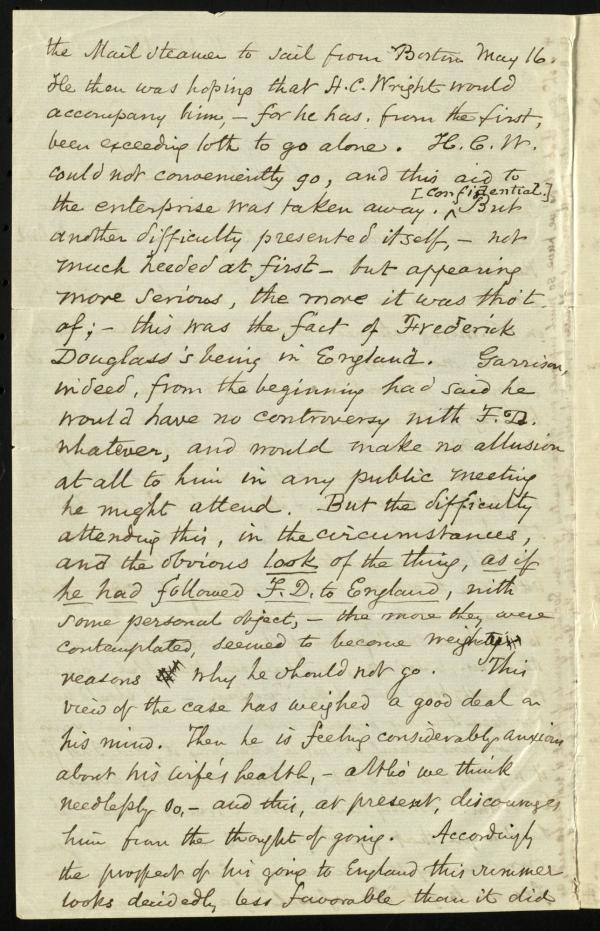 the Mail steamer to sail from Boston May 16.
He then was hoping that H.C. Wright would
accompany him, – for he has, from the first,
been exceeding loth to go alone. H. C. W.
could not conveniently go, and this aid to
[confidential.]
the enterprise was taken away. ^ But
another difficulty presented itself, – not
much heeded at first – but appearing
more serious, the more it was tho't
of; – this was the fact of Frederick
Douglass's being in England. Garrison,
indeed, from the beginning had said he
would have no controversy with F.D.
whatever, and would make no allusion
at all to him in any public meeting
he might attend. But the difficulty
attending this, in the circumstances,
and the obvious look of the thing, as if
he had followed F.D. to England, with
some personal object, – the more they were
contemplated, seemed to become weighty
reasons why he should not go. This
view of the case has weighed a good deal on
his mind. Then he is feeling considerably anxious
about his wife's health, – altho' we think
needlessly so, – and this, at present, discourages
him from the thought of going. Accordingly
the prospect of his going to England this summer
looks decidedly less favorable than it did